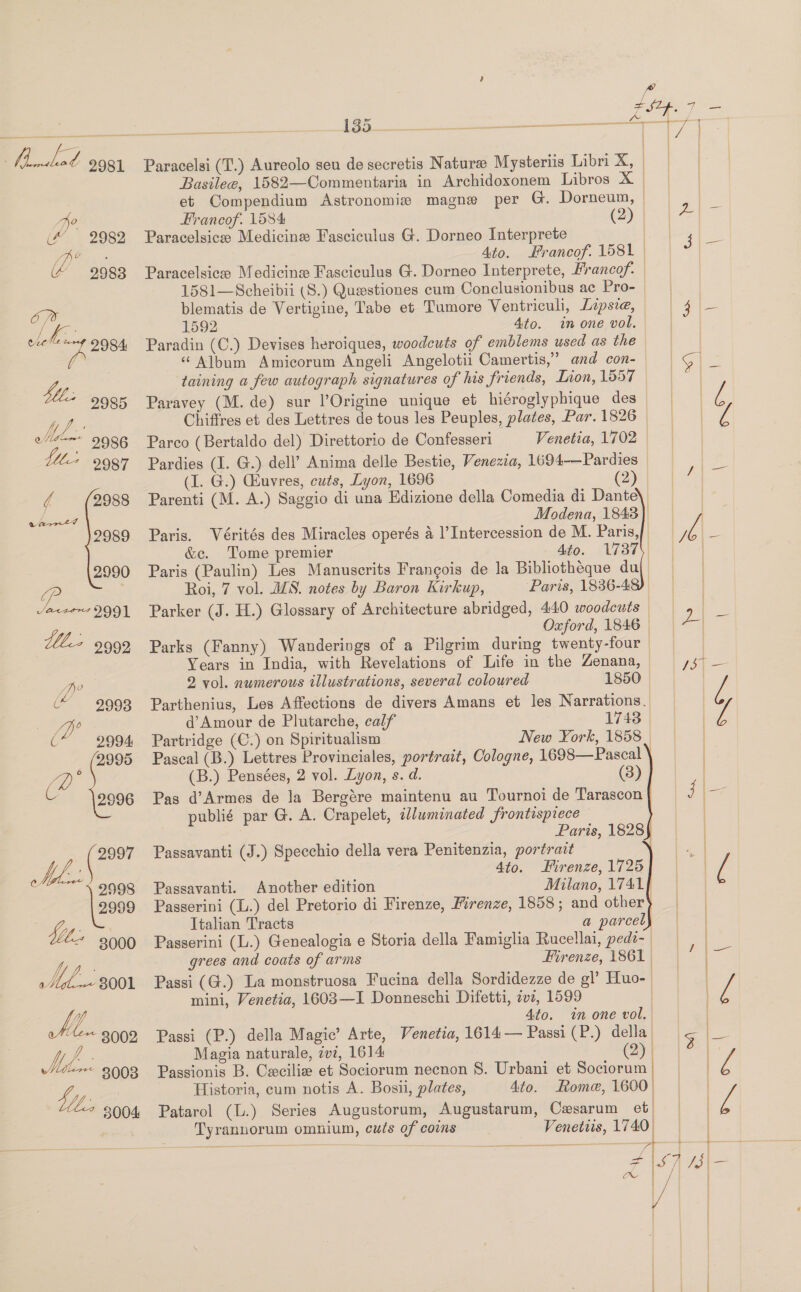 135
2981 Paracelsi (T.) Aureolo seu de secretis Naturæ Mysteriis Libri X,
Basileæ, 1582—Commentaria in Archidoxonem Libros X
et Compendium Astronomiæ magnæ per G. Dorneum,
Francof. 1584 (2)
Do 2982 Paracelsicæ Medicinæ Fasciculus G. Dorneo Interprete
4to. Francof. 1581
Do 2983 Paracelsicæ Medicinæ Fasciculus G. Dorneo Interprete, Francof.
1581—Scheibii (S.) Quæstiones cum Conclusionibus ac Pro-
blematis de Vertigine, Tabe et Tumore Ventriculi, Lipsiæ,
1592 4to. in one vol.
2984 Paradin (C.) Devises heroiques, woodcuts of emblems used as the
“Album Amicorum Angeli Angelotii Camertis,” and con-
taining a few autograph signatures of his friends, Lion, 1557
2985 Paravey (M. de) sur l’Origine unique et hiéroglyphique des
Chiffres et des Lettres de tous les Peuples, plates, Par. 1826
2986 Parco (Bertaldo del) Direttorio de Confesseri Venetia, 1702
2987 Pardies (I. G.) dell’ Anima delle Bestie, Venezia, 1694—Pardies
(I. G.) Œuvres, cuts, Lyon, 1696 (2)
2988 Parenti (M. A.) Saggio di una Edizione della Comedia di Dante
Modena, 1843
2989 Paris. Vérités des Miracles operés à l’Intercession de M. Paris,
&c. Tome premier 4to. 1737
2990 Paris (Paulin) Les Manuscrits François de la Bibliothèque du
Roi, 7 vol. MS. notes by Baron Kirkup, Paris, 1836-48
2991 Parker (J. H.) Glossary of Architecture abridged, 440 woodcuts
Oxford, 1846
2992 Parks (Fanny) Wanderings of a Pilgrim during twenty-four
Years in India, with Revelations of Life in the Zenana,
2 vol. numerous illustrations, several coloured 1850
Do 2993 Parthenius, Les Affections de divers Amans et les Narrations
d’Amour de Plutarche, calf 1743
Do 2994 Partridge (C.) on Spiritualism New York, 1858
2995 Pascal (B.) Lettres Provinciales, portrait, Cologne, 1698—Pascal
(B.) Pensées, 2 vol. Lyon, s. d. (3)
2996 Pas d’Armes de la Bergère maintenu au Tournoi de Tarascon
publié par G. A. Crapelet, illuminated frontispiece
Paris, 1828
2997 Passavanti (J.) Specchio della vera Penitenzia, portrait
4to. Firenze, 1725
2998 Passavanti. Another edition Milano, 1741
2999 Passerini (L.) del Pretorio di Firenze, Firenze, 1858; and other
Italian Tracts a parcel
3000 Passerini (L.) Genealogia e Storia della Famiglia Rucellai, pedi-
grees and coats of arms Firenze, 1861
3001 Passi (G.) La monstruosa Fucina della Sordidezze de gl’ Huo-
mini, Venetia, 1603—I Donneschi Difetti, ivi, 1599
4to. in one vol.
3002 Passi (P.) della Magic’ Arte, Venetia, 1614—Passi (P.) della
Magia naturale, ivi, 1614 (2)
3003 Passionis B. Cæciliæ et Sociorum necnon S. Urbani et Sociorum
Historia, cum notis A. Bosii, plates, 4to. Romæ, 1600
3004 Patarol (L.) Series Augustorum, Augustarum, Cæsarum et
Tyrannorum omnium, cuts of coins Venetiis, 1740